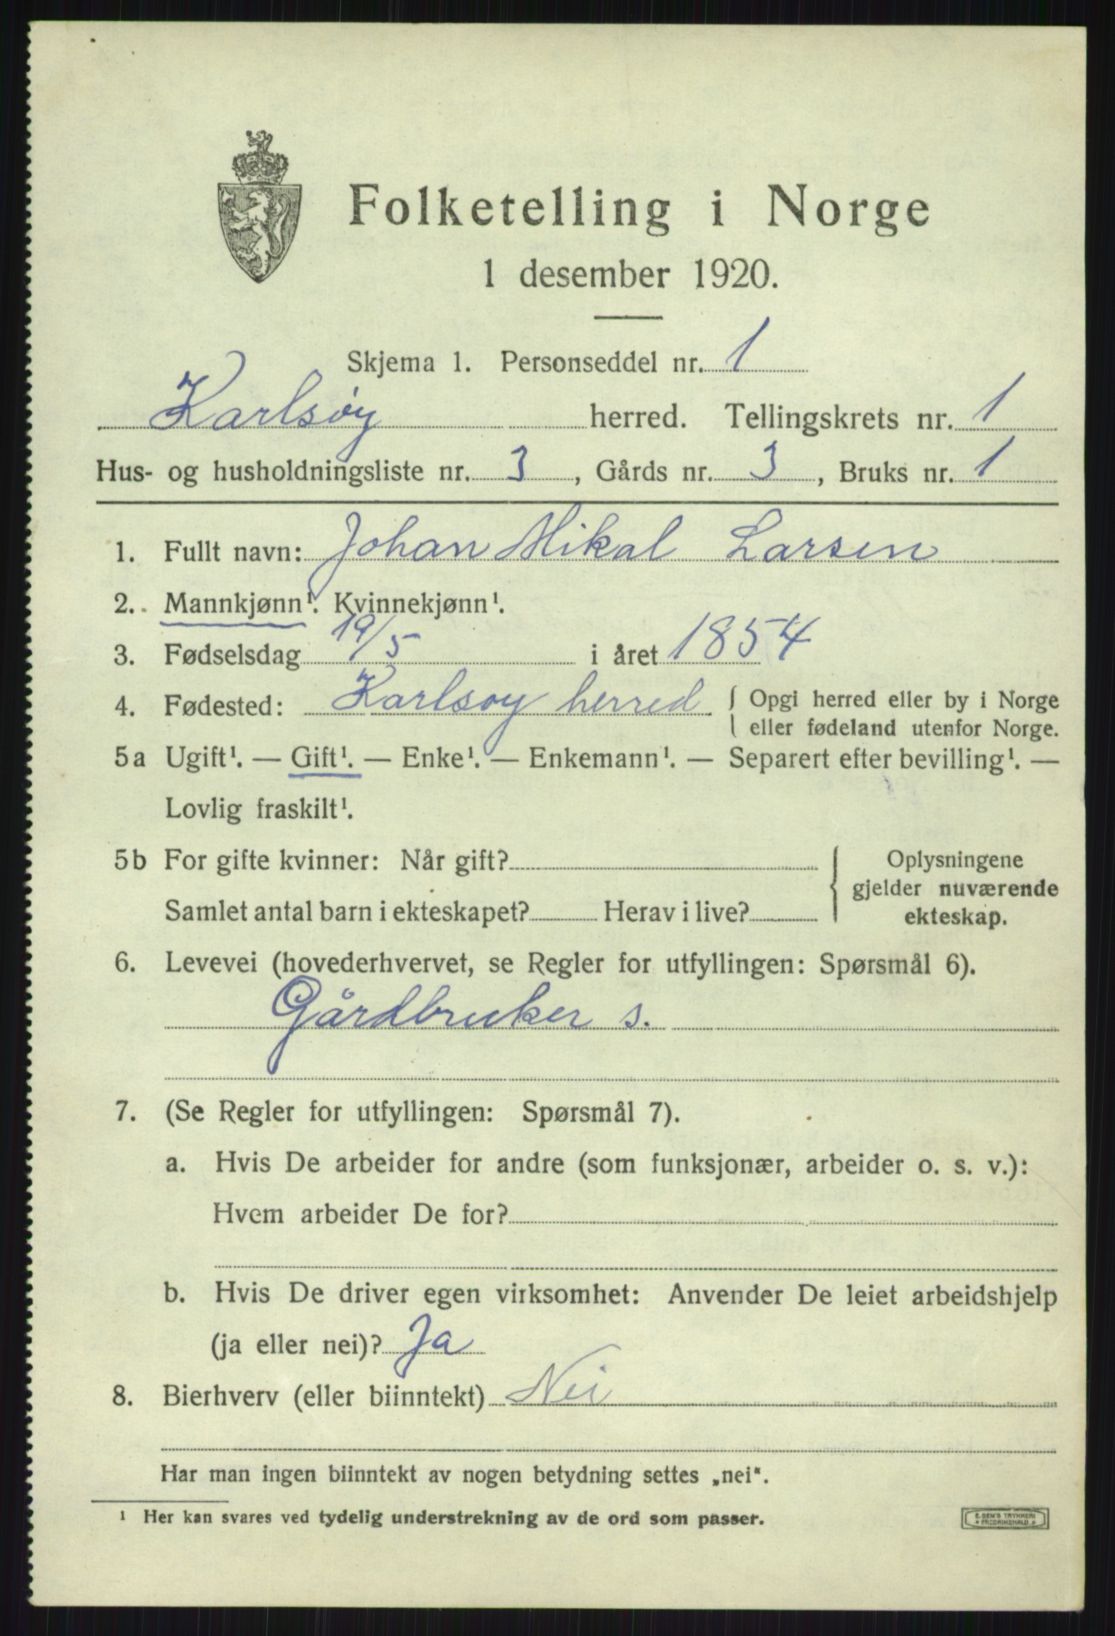 Folketelling i Norge
1 desember 1920.
Skjema 1. Personseddel nr. 1
Karlsøy herred. Tellingskrets nr. 1
Hus- og husholdningsliste nr. 3, Gårds nr. 3, Bruks nr. 1
1. Fullt navn: Johan Mikal Larsen
2. Mannkjønn¹. Kvinnekjønn¹.
3. Fødselsdag 19/5 i året 1854
4. Fødested: Karlsoy herred { Opgi herred eller by i Norge
eller fødeland utenfor Norge.
5a Ugift¹. — Gift¹. — Enke¹. — Enkemann¹. — Separert efter bevilling¹. —
Lovlig fraskilt¹.
5b For gifte kvinner: Når gift? { Oplysningene
gjelder nuværende
Samlet antal barn i ekteskapet? Herav i live? ekteskap.
6. Levevei (hovederhvervet, se Regler for utfyllingen: Spørsmål 6).
Gårdbruker s.
7. (Se Regler for utfyllingen: Spørsmål 7).
a. Hvis De arbeider for andre (som funksjonær, arbeider o. s. v.):
Hvem arbeider De for?
b. Hvis De driver egen virksomhet: Anvender De leiet arbeidshjelp
(ja eller nei)? Ja
8. Bierhverv (eller biinntekt) Nei
Har man ingen biinntekt av nogen betydning settes „nei".
¹ Her kan svares ved tydelig understrekning av de ord som passer.
E. SEM'S TRYKKERI
FREDRIKSHALD